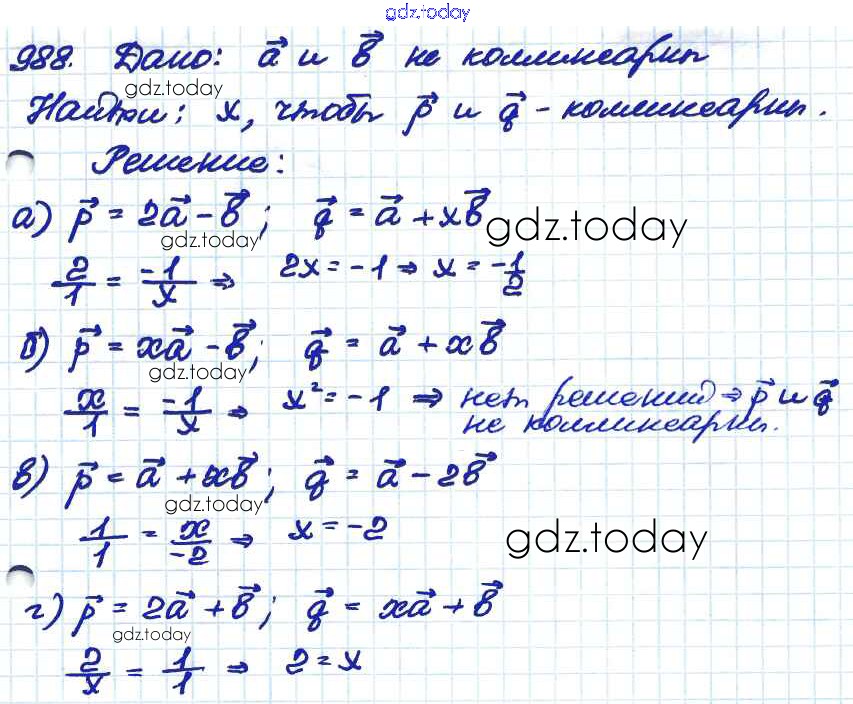 gdz.today
988. Дано: a⃗ и b⃗ не коллинеарны
gdz.today
Найти: x, чтобы p⃗ и q⃗ - коллинеарны.
Решение:
а) p⃗ = 2a⃗ - b⃗; q⃗ = a⃗ + xb⃗
gdz.today gdz.today
2/1 = -1/x ⇒ 2x = -1 ⇒ x = -1/2
б) p⃗ = xa⃗ - b⃗; q⃗ = a⃗ + xb⃗
gdz.today
x/1 = -1/x ⇒ x² = -1 ⇒ нет решений ⇒ p⃗ и q⃗
не коллинеарны.
в) p⃗ = a⃗ + xb⃗; q⃗ = a⃗ - 2b⃗
gdz.today
1/1 = x/-2 ⇒ x = -2
gdz.today
г) p⃗ = 2a⃗ + b⃗; q⃗ = xa⃗ + b⃗
gdz.today
2/x = 1/1 ⇒ 2 = x